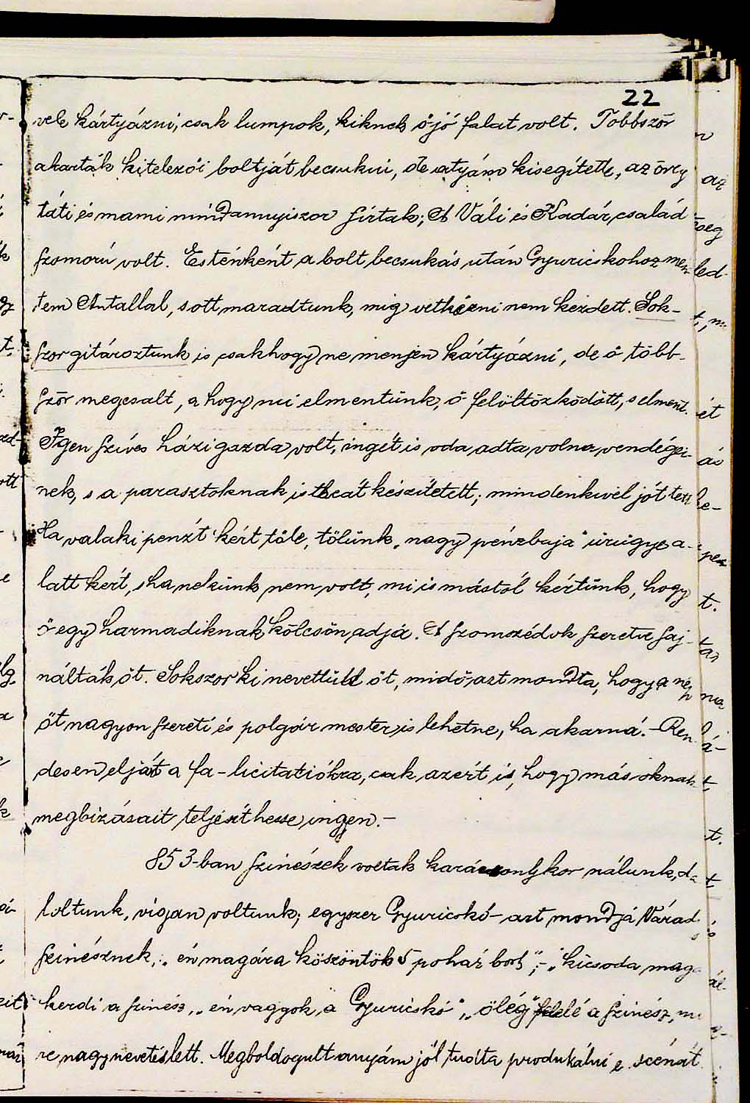 22
vele kártyázni, csak lumpok, kiknek ő jó falat volt. Többször
akarták hitelezői boltját becsukni, de atyám kisegítette, az öreg
táti és mami mindannyiszor sirtak; A Váli és Kádár család
szomorú volt. Esténként a bolt becsukás után Gyuricskohoz men-
tem Antallal, s ott maradtunk, mig vetkőzni nem kezdett. Sok-
szor gitároztunk is csakhogy ne menjen kártyázni, de ő több-
ször megcsalt, a hogy mi elmentünk, ő felöltözködött, s elment.
Igen szíves házi gazda volt, ingét is oda adta volna vendégei-
nek, s a parasztoknak is theát készíttetett; mindenkivel jót tett
Ha valaki pénzt kért tőle, tőlünk „nagy pénzbaja" ürügye a-
latt kért, s ha nekünk nem volt, mi is mástól kértünk, hogy
ő egy harmadiknak kölcsön adja. A szomszédok szeretve saj-
nálták őt. Sokszor ki nevettük őt, midőn azt mondta, hogy a nép
őt nagyon szereti és polgár mester is lehetne, ha akarná. - Ren-
desen eljárt a fa-licitatiókra, csak azért is, hogy másoknak
megbizásait teljesíthesse ingyen. -
853-ban szinészek voltak karácsonykor nálunk, da-
loltunk, vigan voltunk; egyszer Gyuricskó azt mondja Várad
szinésznek, „én magára köszöntök 5 pohár bort"; - „kicsoda maga
kerdi a szinész, „én vagyok a Gyuricskó", „ölég" felelé a szinész, mi-
re nagy nevetés lett. Megboldogult anyám jól tudta produkálni e scénát